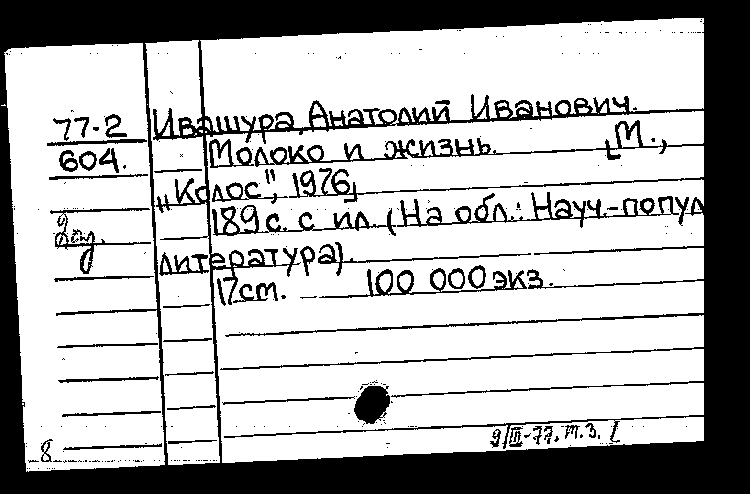 77-2 Ивашура, Анатолий Иванович.
604. Молоко и жизнь. [М.,
„Колос", 1976]
189 с. с ил. (На обл.: Науч.-попул
литература).
17 cm. 100 000 экз.
9/III-77. т.з.
8